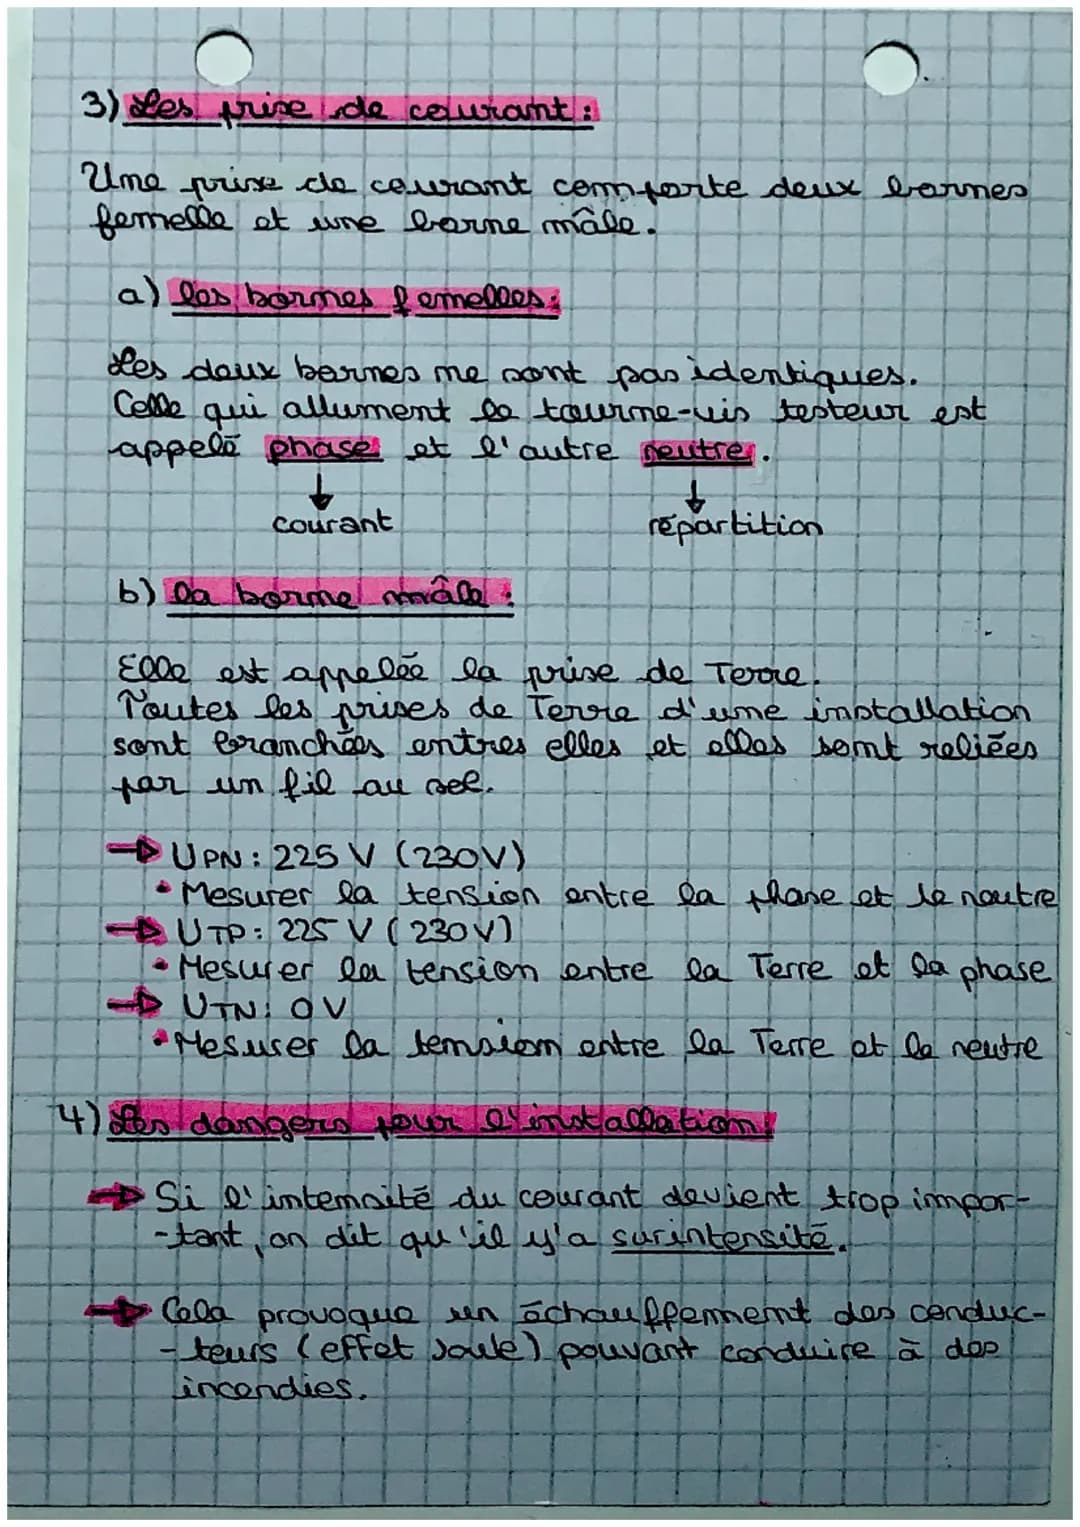 3) Les prise de courant :
Une prise de courant comporte deux bornes
femelle et une borne mâle.
a) les bornes femelles:
Les deux bornes ne sont pas identiques.
Celle qui allument le tourne-vis testeur est
appelé phase et l'autre neutre.
courant répartition
b) la borne mâle :
Elle est appelée la prise de Terre.
Toutes les prises de Terre d'une installation
sont branchées entres elles et elles sont reliées
par un fil au sol.
UPN : 225 V (230V)
• Mesurer la tension entre la phase et le neutre
UTP : 225 V (230V)
• Mesurer la tension entre la Terre et la phase
UTN : 0 V
• Mesurer la tension entre la Terre et le neutre
4) Les dangers pour l'installation:
Si l'intensité du courant devient trop impor-
-tant, on dit qu'il y'a surintensité.
Cela provoque un échauffement des conduc-
-teurs (effet Joule) pouvant conduire à des
incendies.